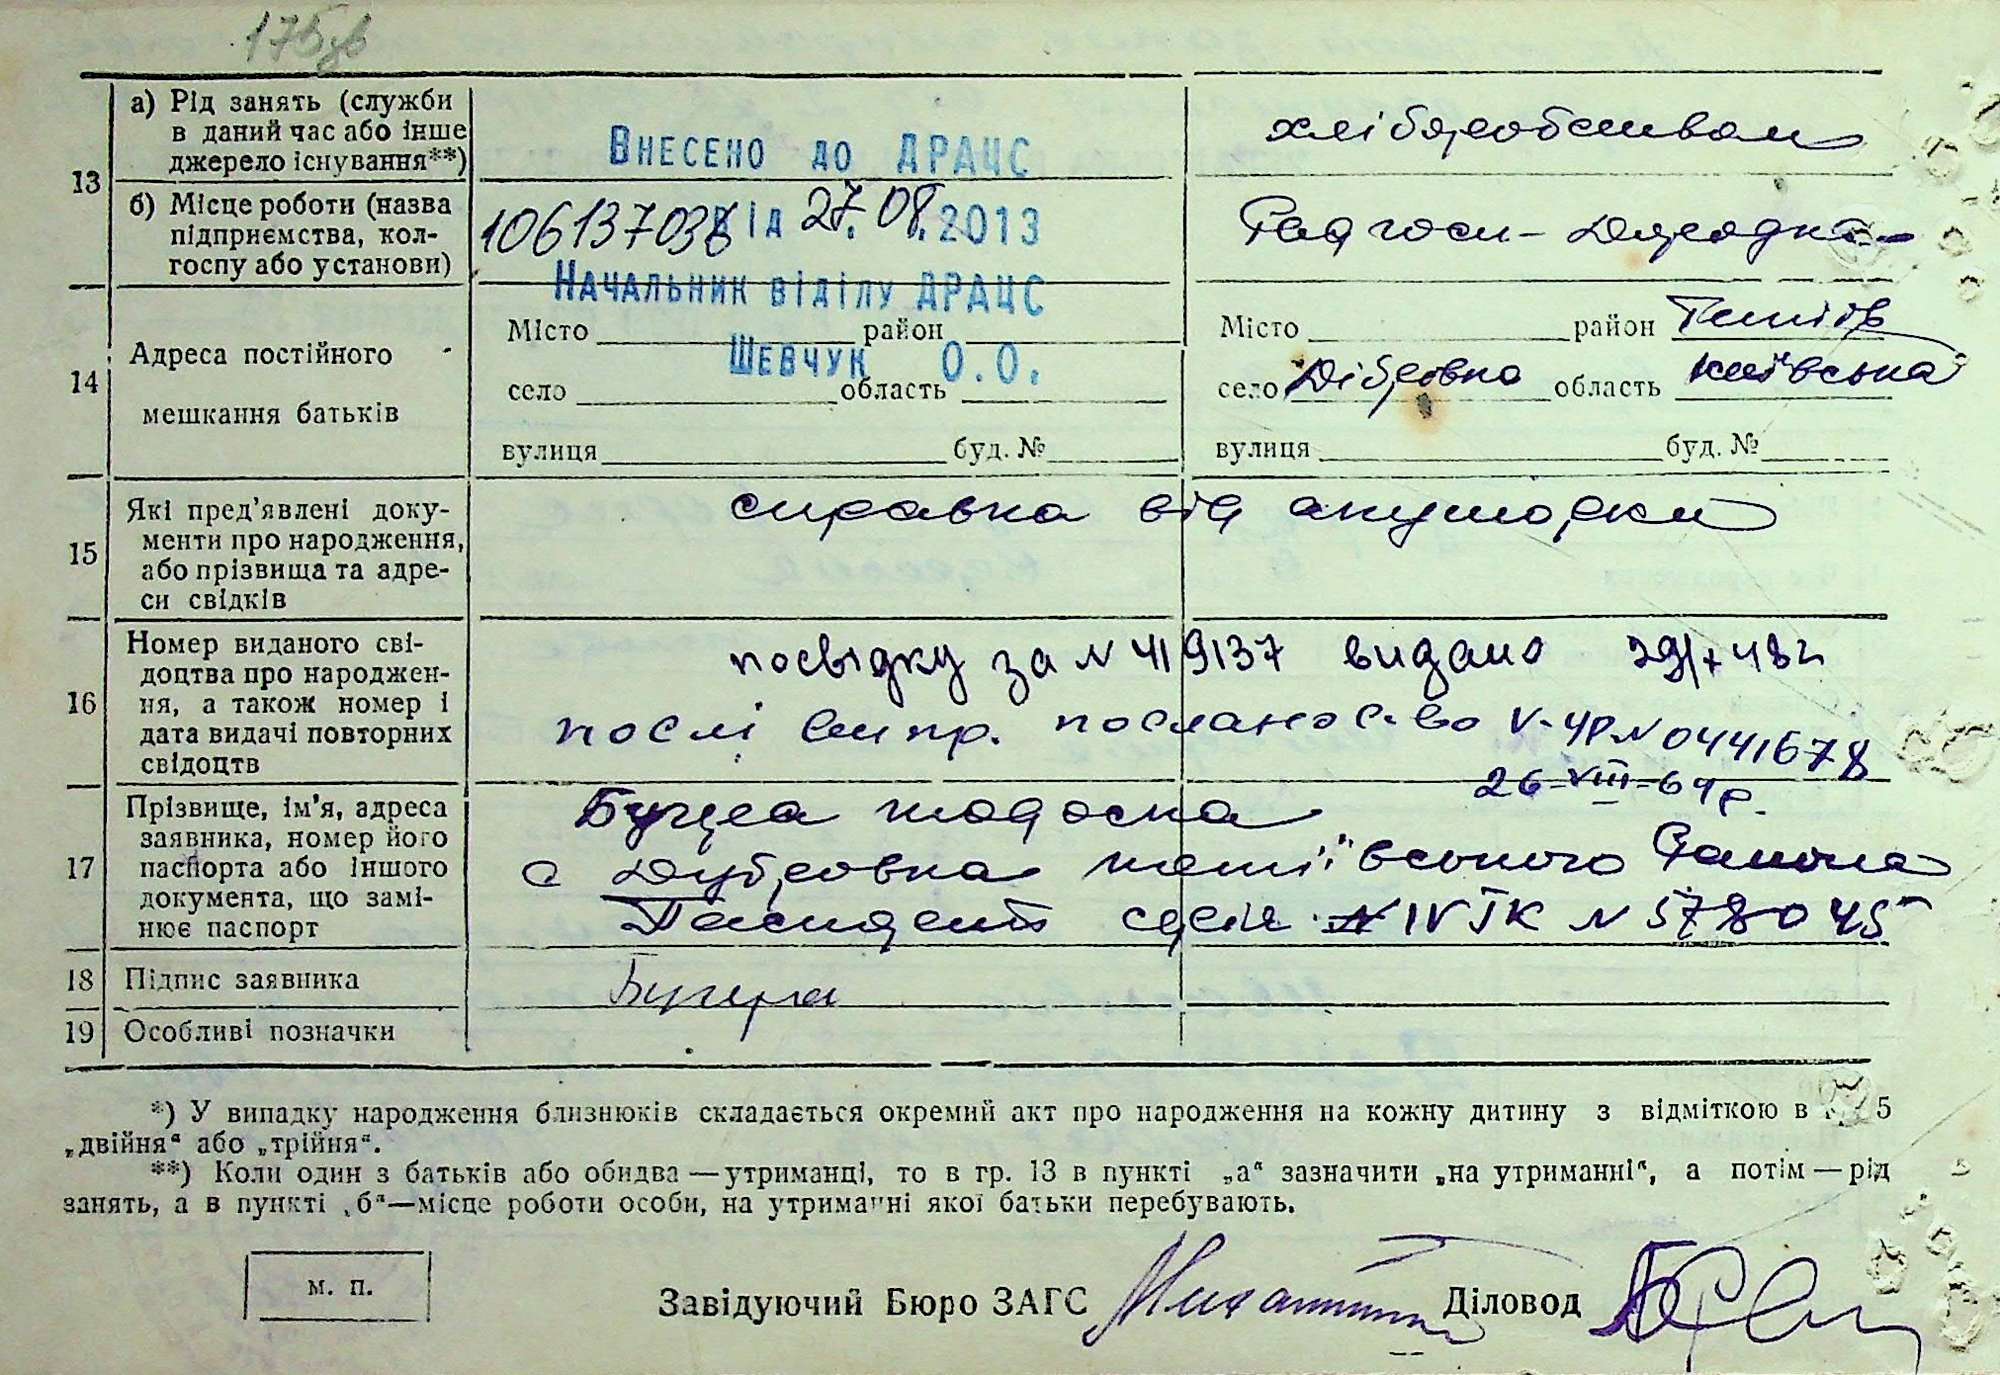 175зв
13
а) Рід занять (служби
в даний час або інше
джерело існування**)
Внесено до ДРАЦС
хліборобством
б) Місце роботи (назва
підприємства, кол-
госпу або установи)
106137038 від 27.08.2013
Радгосп-
Начальник відділу ДРАЦС
Шевчук О.О.
14
Адреса постійного
мешкання батьків
Місто район
село область
вулиця буд. №
Місто район Тетіїв
село Дібровка область Київська
вулиця буд. №
15
Які пред'явлені доку-
менти про народження,
або прізвища та адре-
си свідків
справка від акушорки
16
Номер виданого сві-
доцтва про народжен-
ня, а також номер і
дата видачі повторних
свідоцтв
посвідку за N 419137 видано 48 г
послі випр. V-УР N 0441678
26-VIII-69 р.
17
Прізвище, ім'я, адреса
заявника, номер його
паспорта або іншого
документа, що замі-
нює паспорт
Бугера
с Дубровка Тетіївського Района
серія IV ТК N 578045
18
Підпис заявника
Бугера
19
Особливі позначки
*) У випадку народження близнюків складається окремий акт про народження на кожну дитину з відміткою в 5
„двійня“ або „трійня“.
**) Коли один з батьків або обидва — утриманці, то в гр. 13 в пункті „а“ зазначити „на утриманні“, а потім — рід
занять, а в пункті „б“—місце роботи особи, на утриманні якої батьки перебувають.
м. п.
Завідуючий Бюро ЗАГС
Діловод